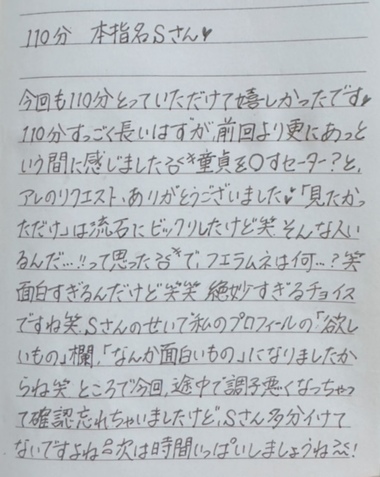 110分 本指名Sさん♥
今回も110分とっていただけて嬉しかったです♥
110分すっごく長いはずが、前回より更にあっと
いう間に感じました 童貞を〇すセーター?と、
アレのリクエスト、ありがとうございました♥「見たかっ
ただけ」は流石にビックリしたけど笑 そんな人い
るんだ…!!って思った で、フェラムネは何…?笑
面白すぎるんだけど笑笑 絶妙すぎるチョイス
ですね笑、Sさんのせいで私のプロフィールの「欲し
いもの」欄、「なんか面白いもの」になりましたか
らね笑 ところで今回、途中で調子悪くなっちゃっ
て確認忘れちゃいましたけど、Sさん多分イけて
ないですよね 次は時間いっぱいしましょうね!